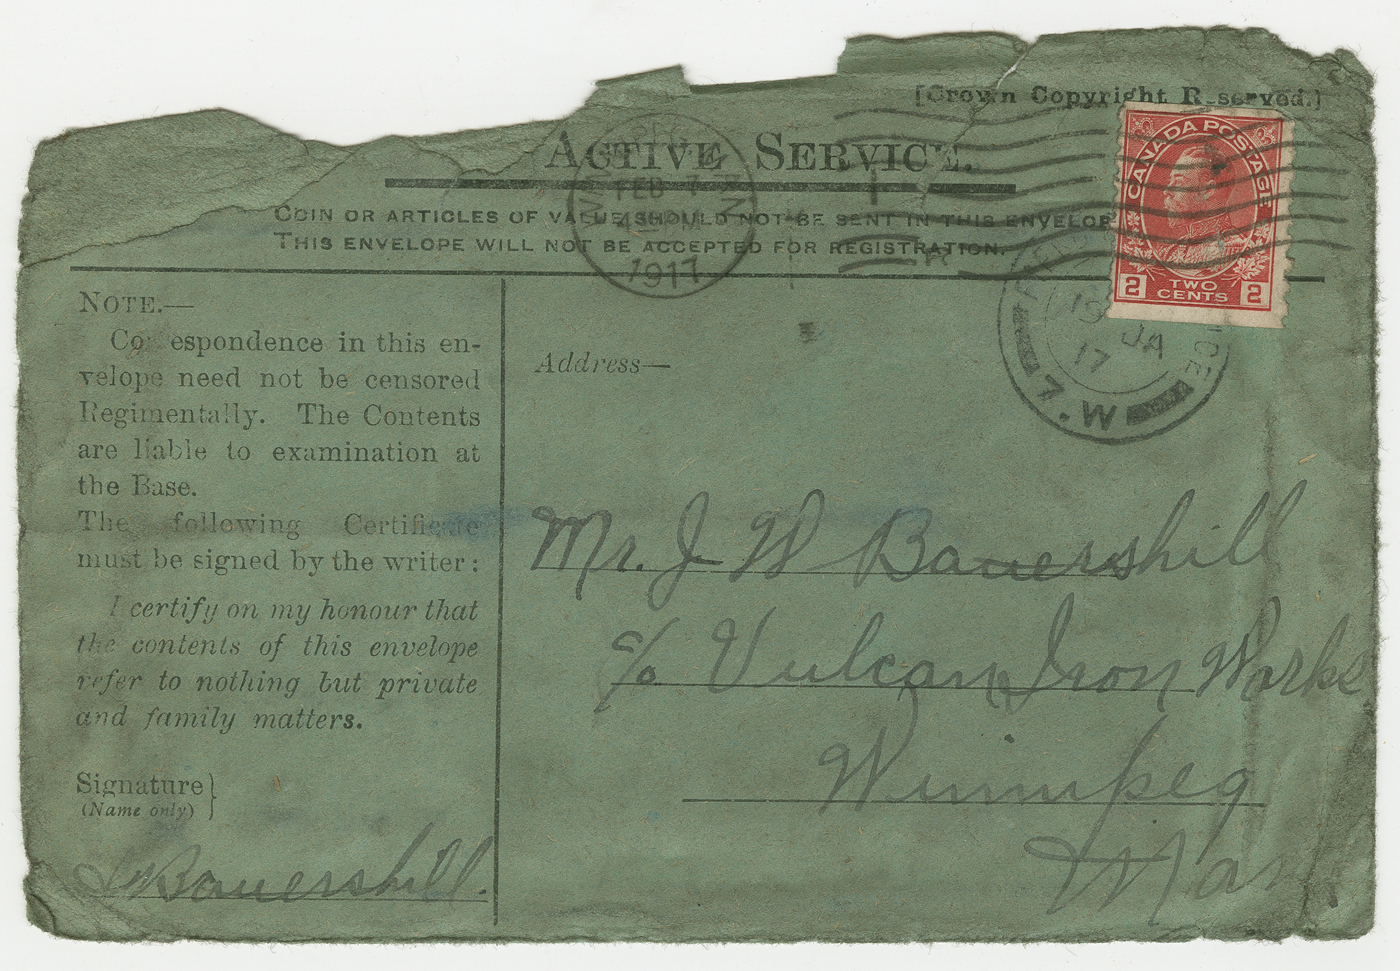 [Crown Copyright Reserved.]
ACTIVE SERVICE.
COIN OR ARTICLES OF VALUE SHOULD NOT BE SENT IN THIS ENVELOPE
THIS ENVELOPE WILL NOT BE ACCEPTED FOR REGISTRATION.
CANADA POSTAGE
2 TWO CENTS 2
FEB 7
1917
19 JA
17
7.W
NOTE.—
Correspondence in this en-
velope need not be censored
Regimentally. The Contents
are liable to examination at
the Base.
The following Certificate
must be signed by the writer:
I certify on my honour that
the contents of this envelope
refer to nothing but private
and family matters.
Signature}
(Name only)
Bowershill.
Address—
Mr. J W Bowershill
c/o Vulcan Iron Works
Winnipeg
Man